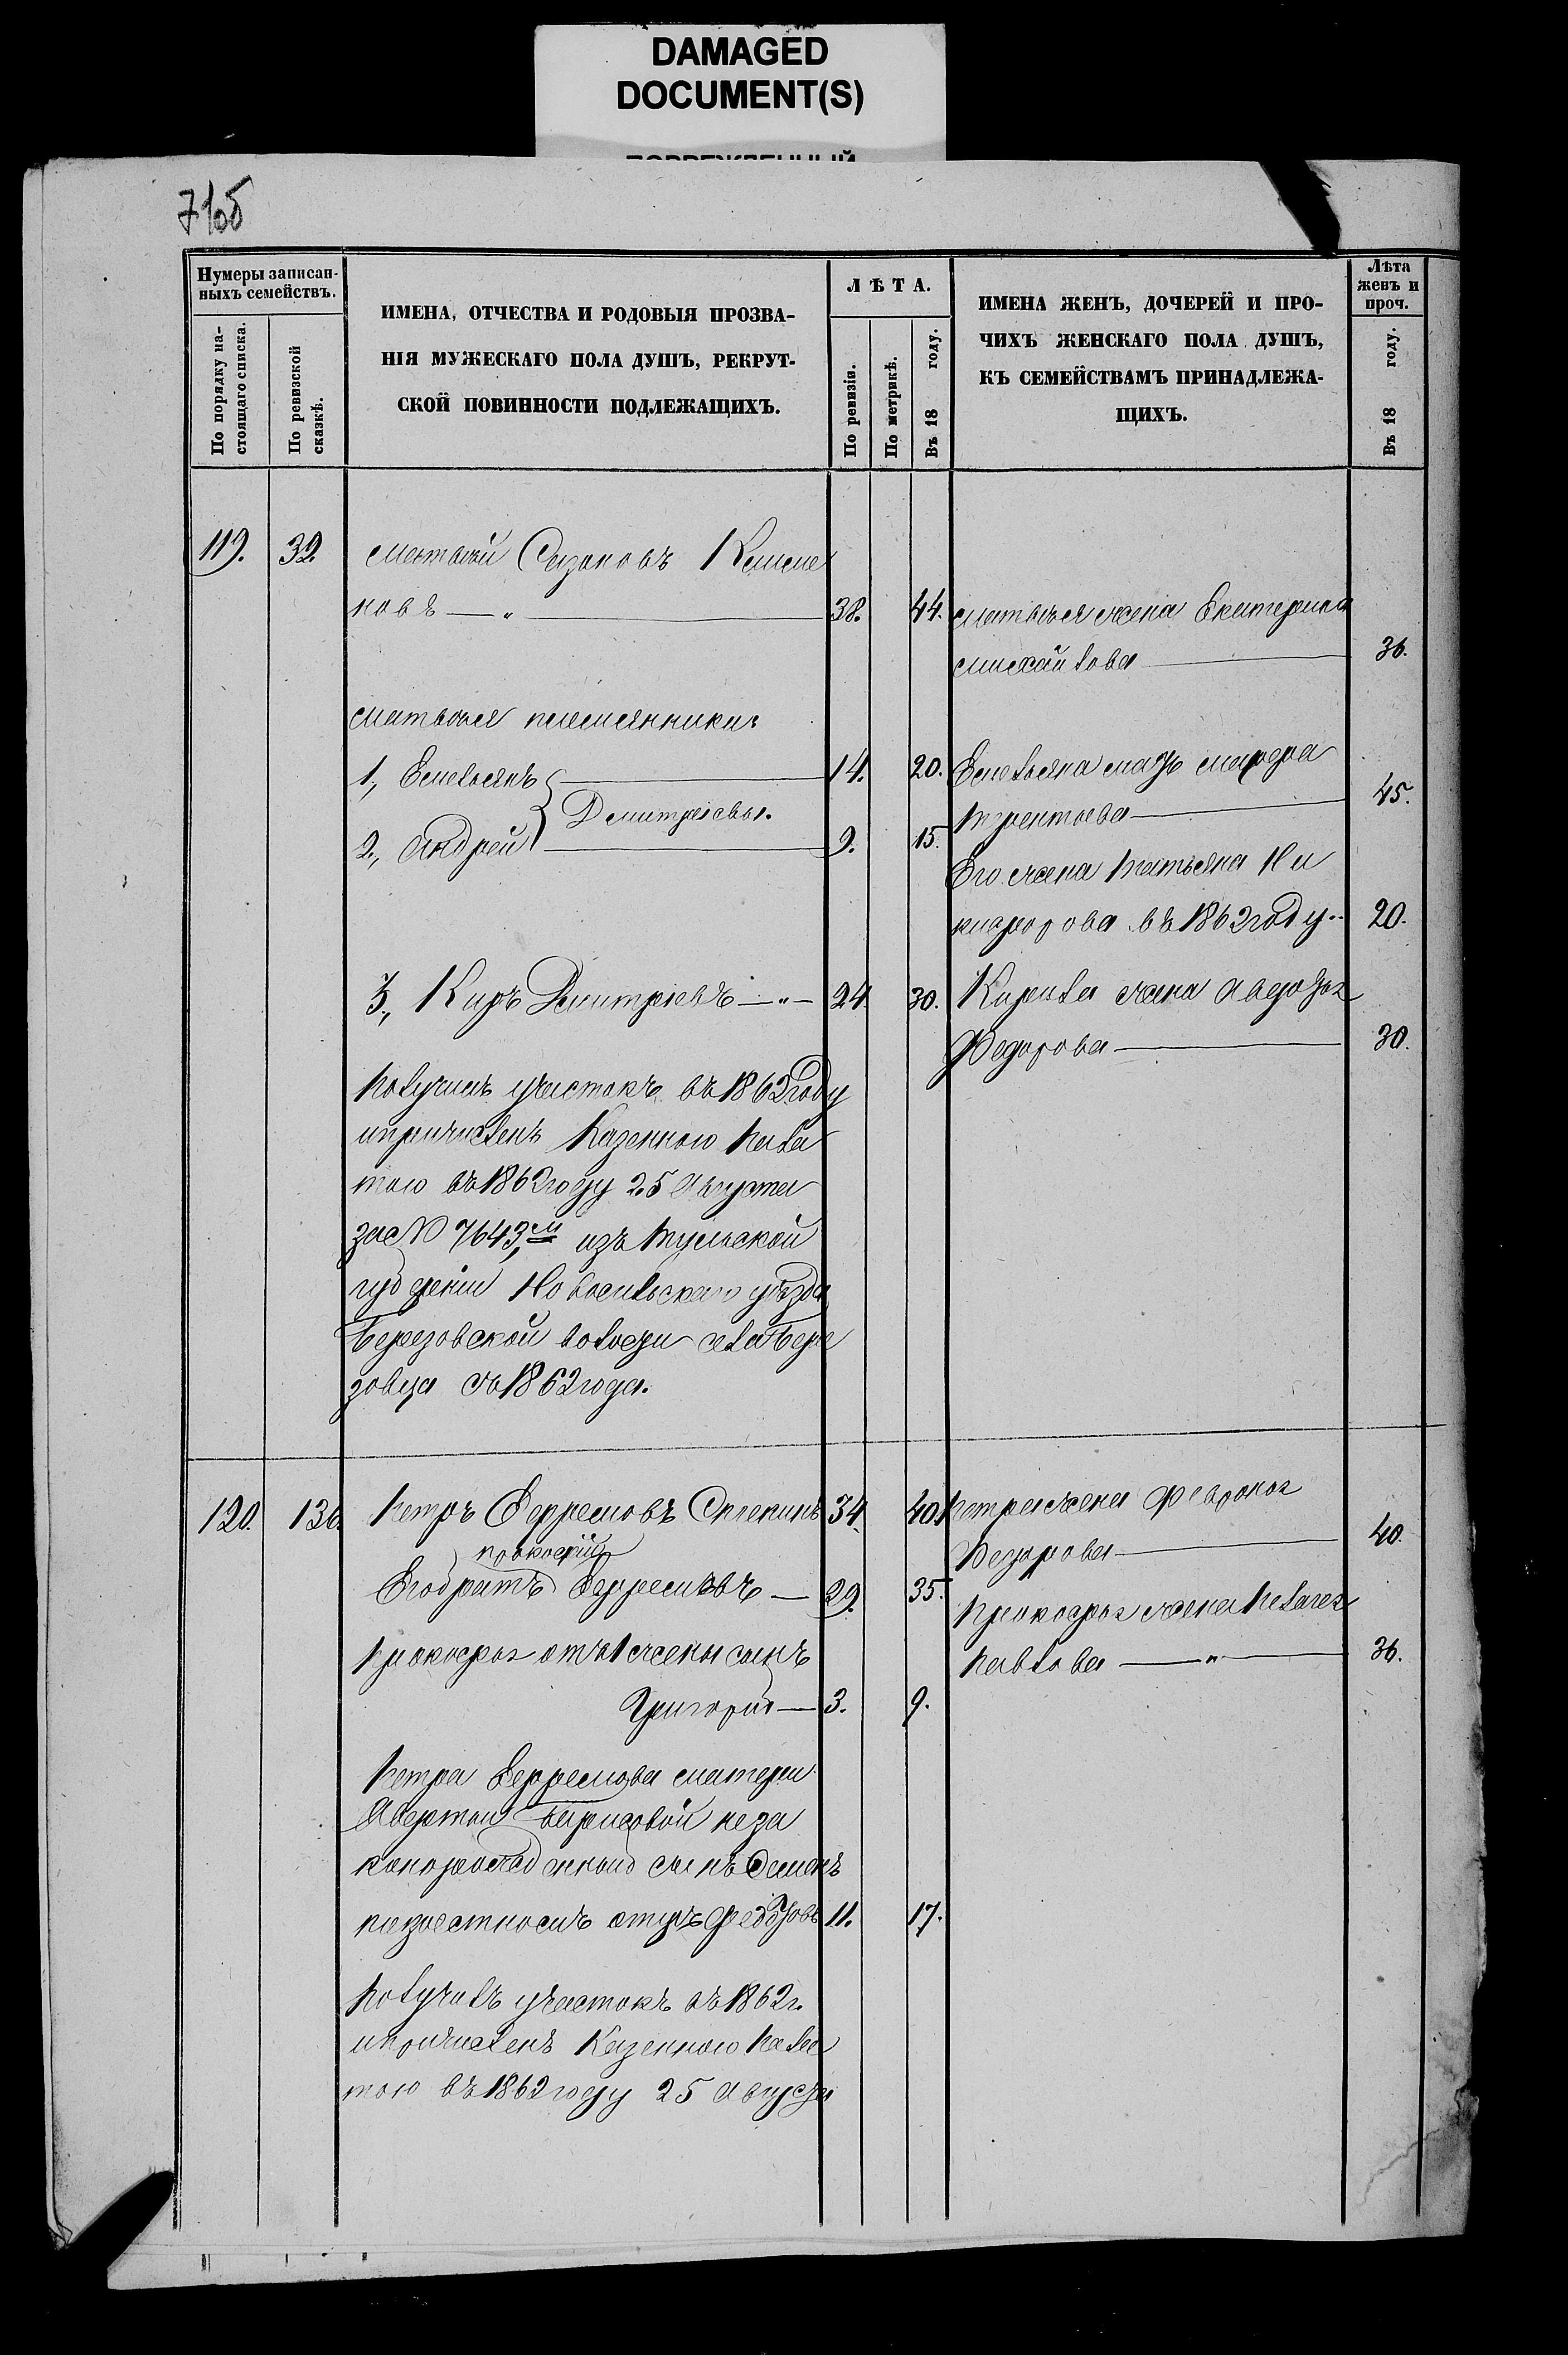 DAMAGED
DOCUMENT(S)
71об
Нумеры записан-
ныхъ семействъ.
По порядку на-
стоящаго списка.
По ревизской
сказкѣ.
ИМЕНА, ОТЧЕСТВА И РОДОВЫЯ ПРОЗВА-
НІЯ МУЖЕСКАГО ПОЛА ДУШЪ, РЕКРУТ-
СКОЙ ПОВИННОСТИ ПОДЛЕЖАЩИХЪ.
ЛѢТА.
По ревизіи.
По метрикѣ.
Въ 18 году.
ИМЕНА ЖЕНЪ, ДОЧЕРЕЙ И ПРО-
ЧИХЪ ЖЕНСКАГО ПОЛА ДУШЪ,
КЪ СЕМЕЙСТВАМЪ ПРИНАДЛЕЖА-
ЩИХЪ.
Лѣта
женъ и
проч.
Въ 18 году.
119. 39. Матвей Сазоновъ
новъ — „ — 38. 44.
Матвея жена Екатерина
Михайлова — 36.
Матвея племянники:
1, Емельянъ — 14. 20.
Дмитріевы.
2, Андрей — 9. 15.
Емельяна мать Марфа
45.
Его жена Татьяна Ни
кифорова въ 1862 году.. 20.
3, Киръ Дмитріевъ — „ — 24. 30.
Кирила жена Авдотья
Федорова — 30.
Получилъ участокъ въ 1862 году
и причисленъ Казенною Пала
тою въ 1862 году 25 Августа
за № 7643,м изъ Тульской
губерніи Новосильскаго уѣзда
Березовской волости села Бере
зовца съ 1862 года.
120. 136. Петръ Ефремовъ 34. 40.
Петра жена Февронья
Федорова — 40.
прокофій
Ефремовъ — 29. 35.
Прокофья жена Пелагея
Павлова — „ — 36.
Прокофья отъ 1 жены сынъ
Григорій — 3. 9.
Петра Ефремова матери
Борисовой неза
коннорожденный сынъ Семенъ
отцъ Федотовъ 11. 17.
Получилъ участокъ въ 1862 г.
и причисленъ Казенною Пала
тою въ 1862 году 25 Августа